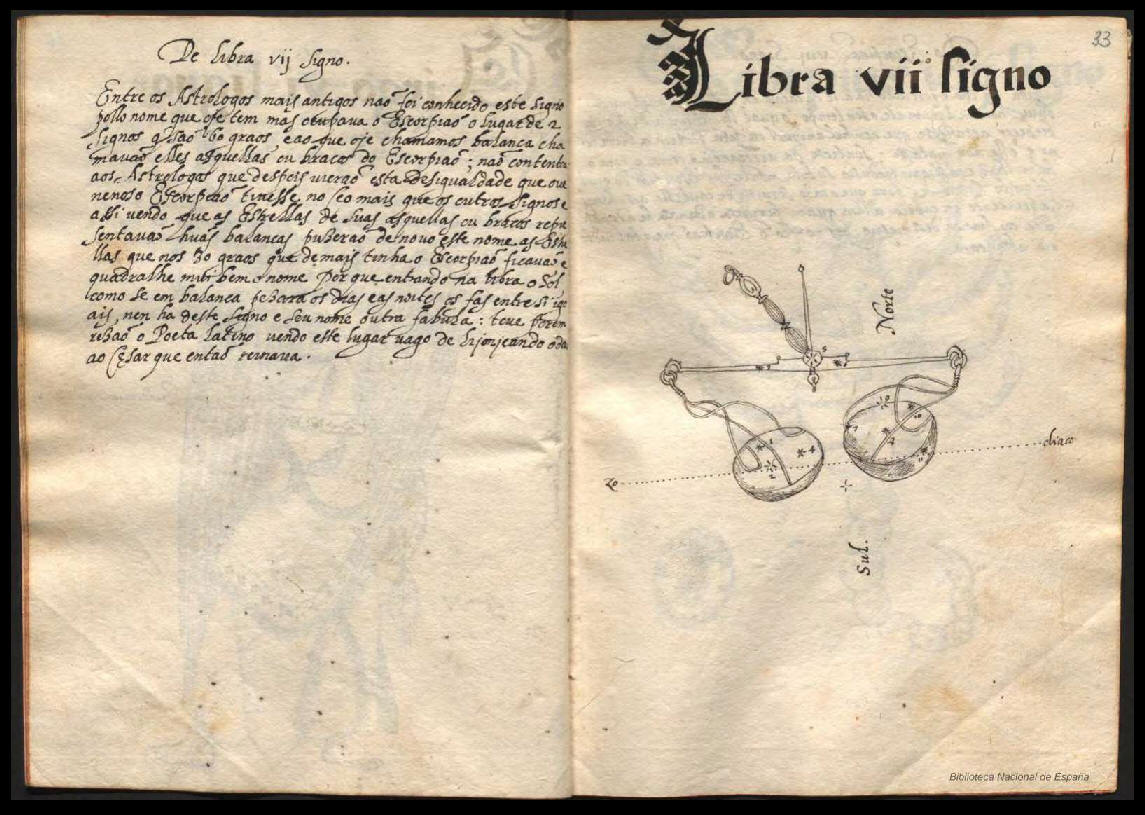 De libra vij signo.
Entre os Astrologos mais antigos naõ foi conhecido este signo
pollo nome que oje tem mas ocupava o Escorpiaõ o lugar de 2
signos q̃ saõ 60 graos e ao que oje chamamos balança cha
mavaõ elles asquellas ou braços do Escorpiaõ; naõ contentes
aos Astrologos que despois vieraõ esta desigualdade que o ve
nenoso Escorpiaõ tivesse no seo mais que os outros signos e
assi vendo que as Estrellas de suas asquellas ou braços repre
sentavaõ huãs balanças puseraõ de novo este nome as Estre
llas que nos 30 graos que demais tinha o Escorpiaõ ficavaõ e
quadralhe mui bem o nome por que entrando na libra o Sol
como se em balança pesara os dias e as noites os fas entre si igu
ais, nen ha deste signo e seu nome outra fabula: teve porem
o Poeta latino vendo este lugar vago de
ao Cesar que entaõ reinava.
33
Libra vii signo
Norte
Zo
diaco
Sul.
Biblioteca Nacional de España